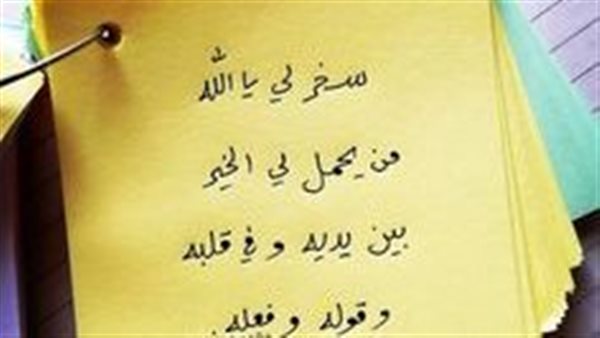 سخر لي يا الله
من يحمل لي الخير
بين يديه و في قلبه
و قوله و فعله.